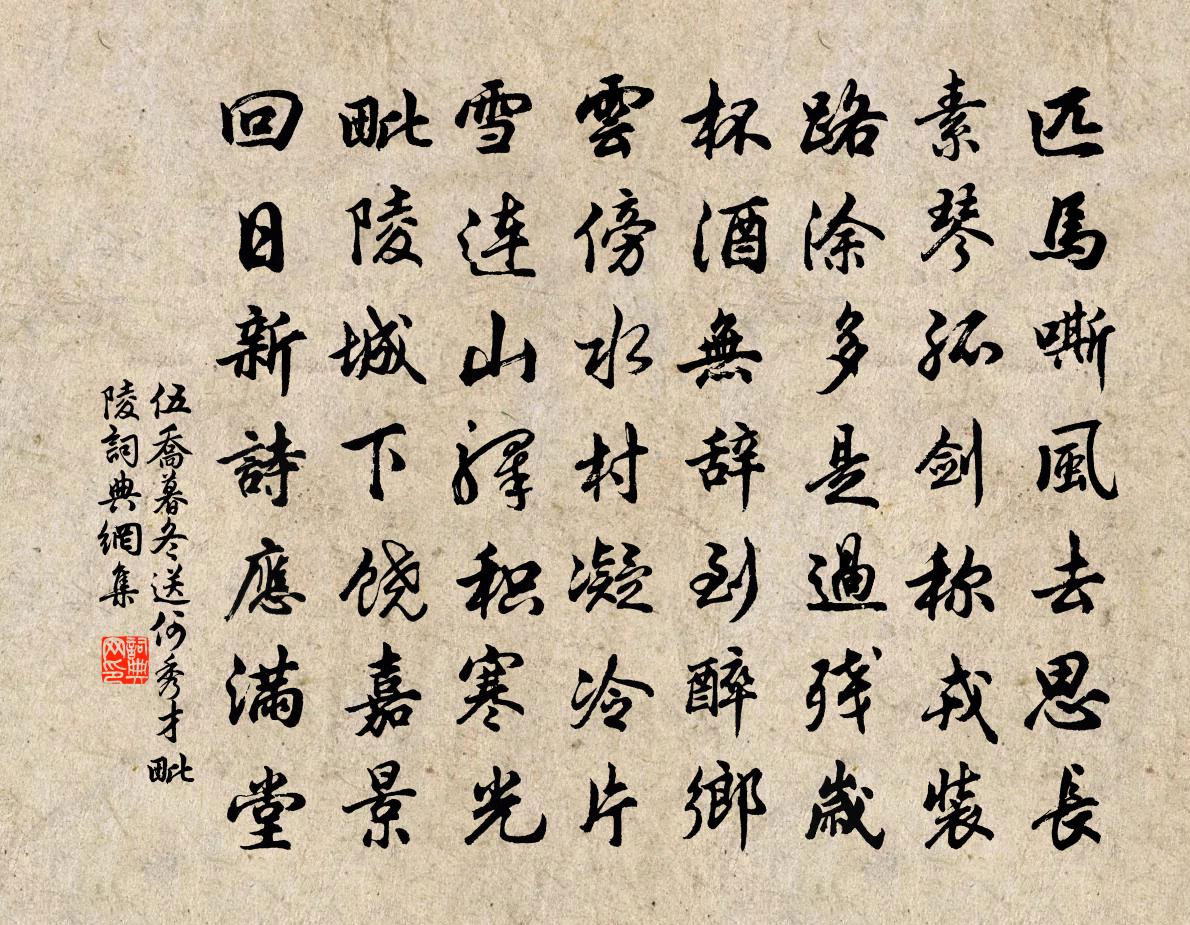 匹馬嘶風去思長
素琴孤剑称戎裝
路涂多是過残歲
杯酒無辞到醉鄉
雲傍水村凝冷片
雪連山驛积寒光
毗陵城下饶嘉景
回日新詩應满堂
伍喬暮冬送何秀才毗
陵詞典網集
詞典
网印